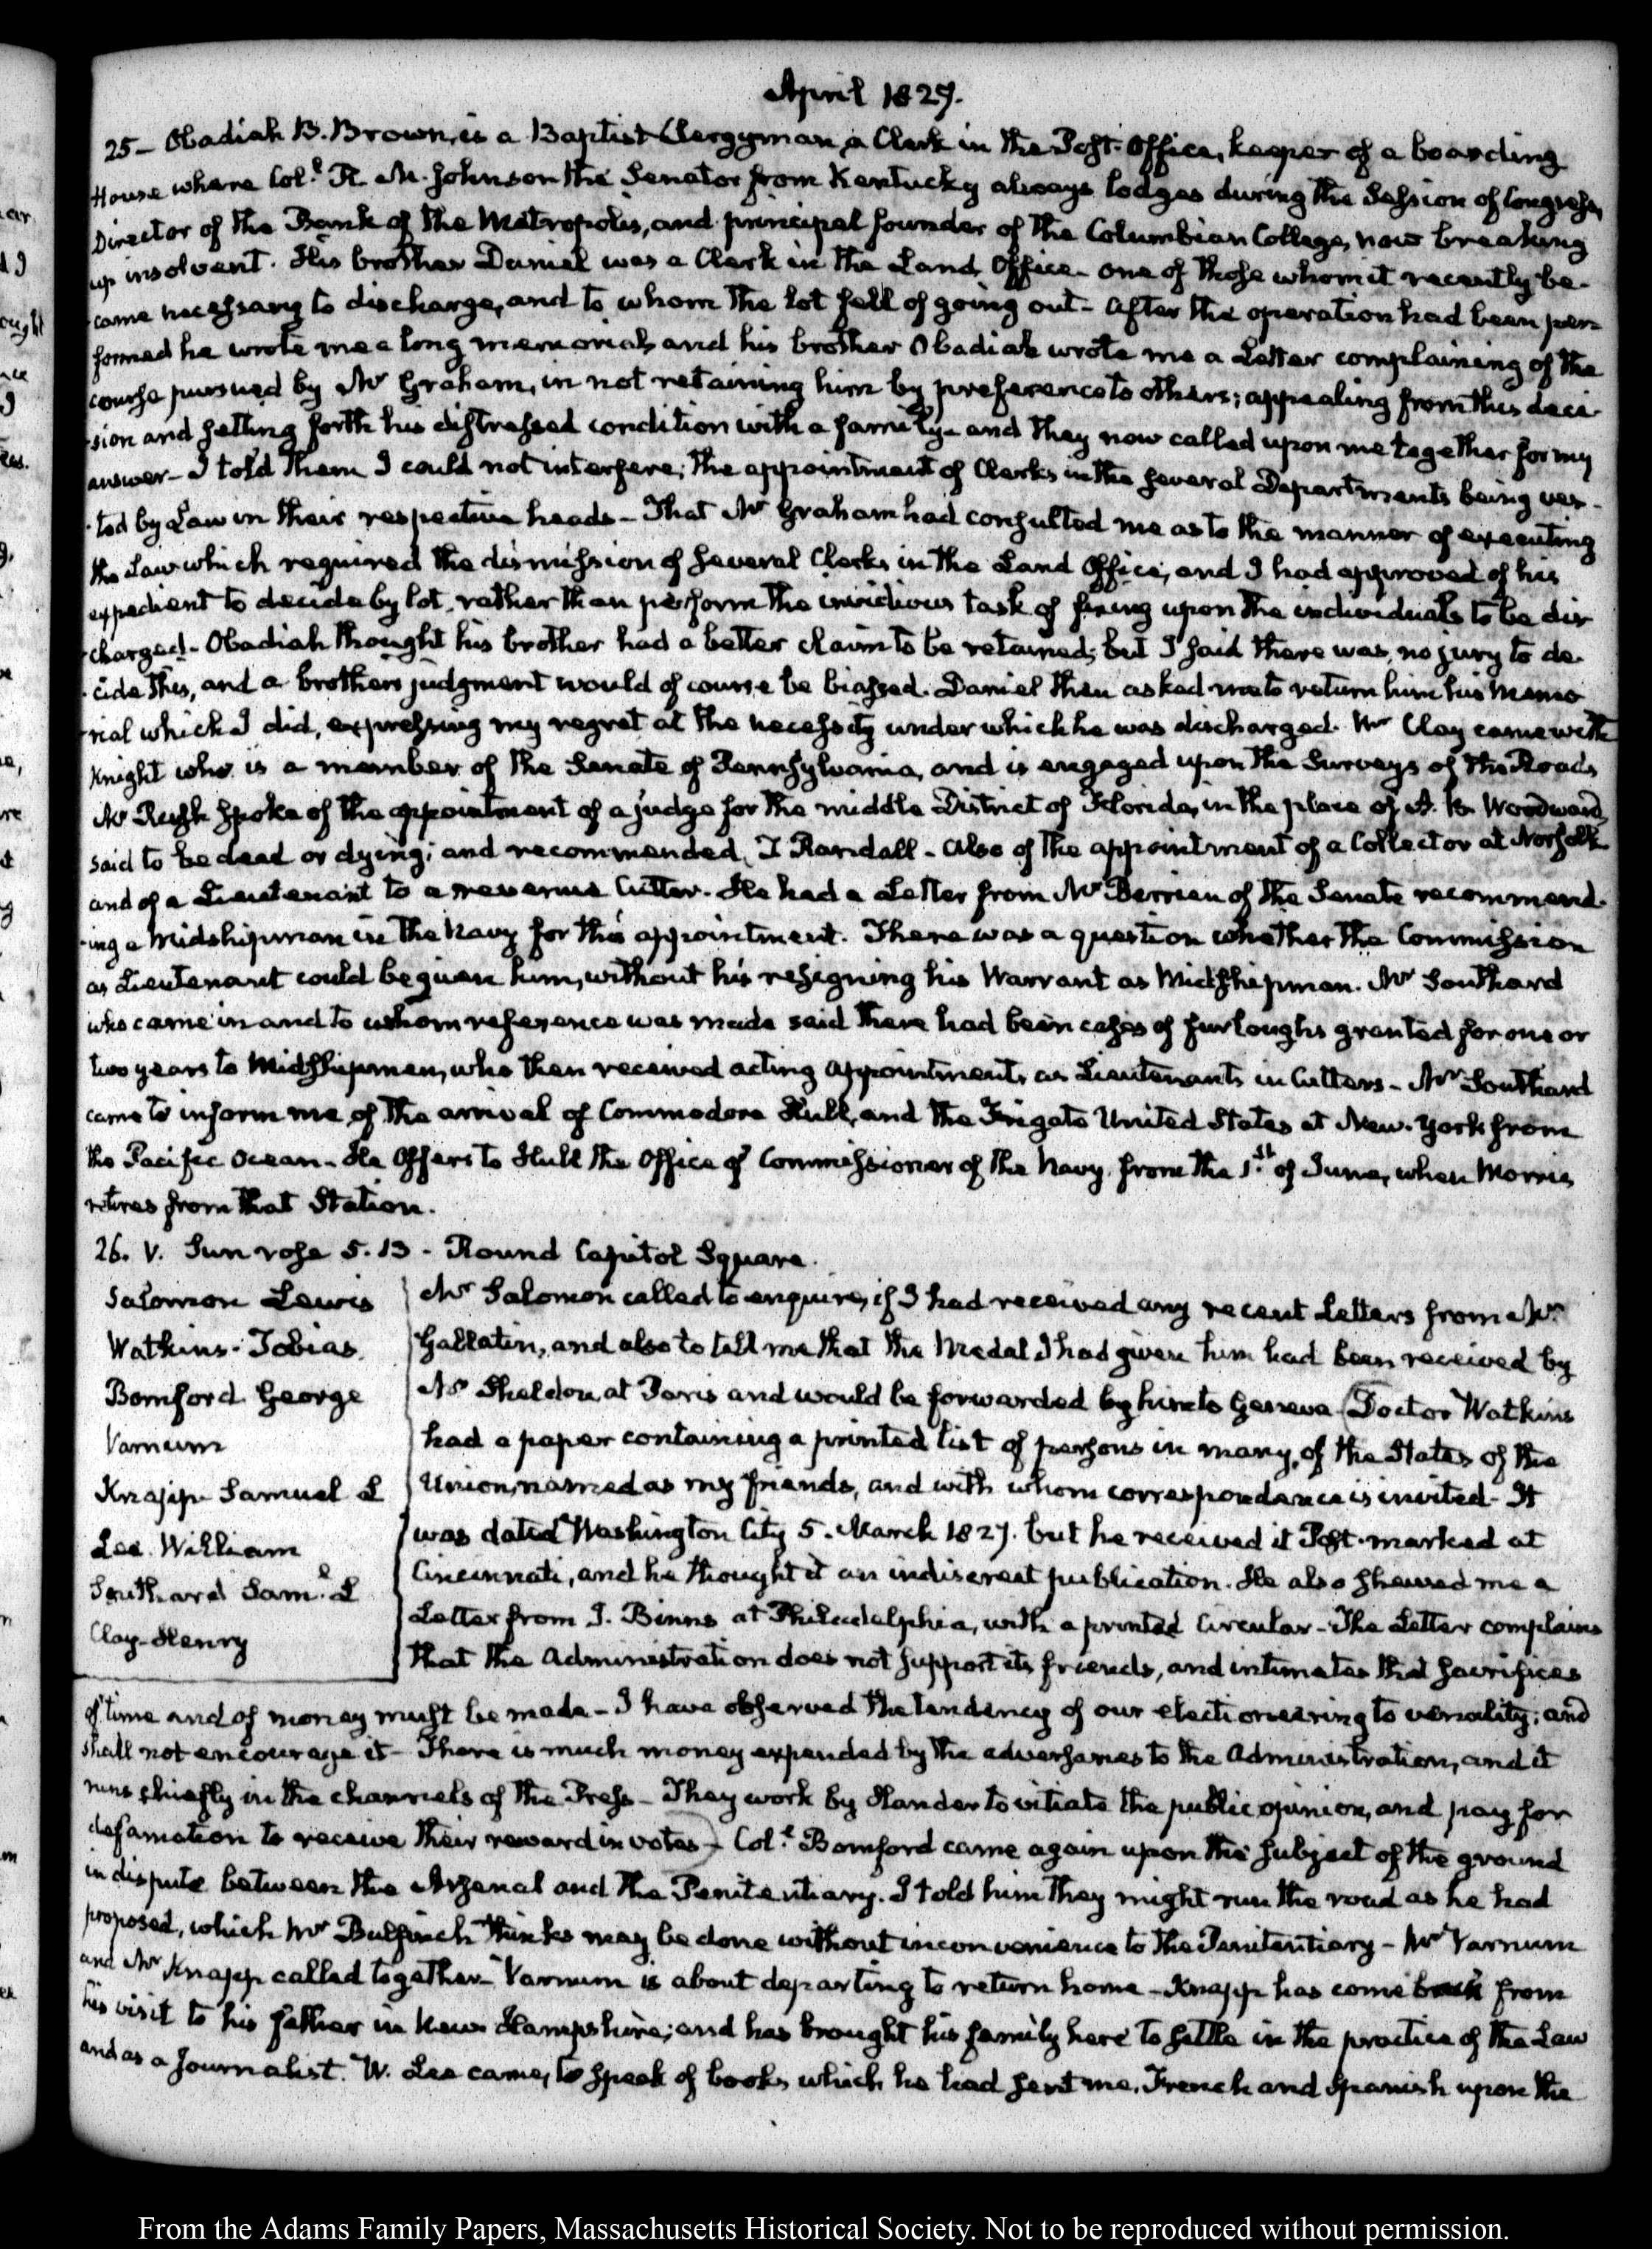 April 1827.
25— Obadiah B. Brown, is a Baptist Clergyman, a Clerk in the Post-Office, keeper of a boarding
House where Coll. R. M. Johnson the Senator from Kentucky always lodges during the Session of Congress,
Director of the Bank of the Metropolis, and principal founder of the Columbian College, now breaking
up insolvent. His brother Daniel was a Clerk in the Land Office— one of those whom it recently be-
-came necessary to discharge, and to whom the lot fell of going out— After the operation had been per-
formed he wrote me a long memorial, and his brother Obadiah wrote me a Letter complaining of the
course pursued by Mr Graham, in not retaining him by preference to others; appealing from this deci-
-sion and setting forth his distressed condition with a family— and they now called upon me together for my
answer— I told them I could not interfere; the appointment of Clerks in the several Departments being ves-
-ted by Law in their respective heads— That Mr Graham had consulted me as to the manner of executing
the Law which required the dismission of several Clerks in the Land Office, and I had approved of his
expedient to decide by lot, rather than perform the invidious task of fixing upon the individuals to be dis-
-charged— Obadiah thought his brother had a better claim to be retained; but I said there was no jury to de-
-cide this, and a brothers judgment would of course be biassed. Daniel then asked me to return him his Memo-
-rial which I did, expressing my regret at the necessity under which he was discharged. Mr Clay came with
Knight who is a member of the Senate of Pennsylvania, and is engaged upon the Surveys of the Roads
Mr Rush spoke of the appointment of a judge for the middle District of Florida, in the place of A. B. Woodward,
said to be dead or dying; and recommended, T Randall— also of the appointment of a Collector at Norfolk
and of a Lieutenant to a revenue Cutter. He had a Letter from Mr Berrien of the Senate recommend-
-ing a Midshipman in the Navy for this appointment. There was a question whether the Commission
as Lieutenant could be given him, without his resigning his Warrant as Midshipman. Mr Southard
who came in and to whom reference was made said there had been cases of furloughs granted for one or
two years to Midshipmen, who then received acting appointments as Lieutenants in Cutters— Mr Southard
came to inform me of the arrival of Commodore Hull, and the Frigate United States at New-York from
the Pacific Ocean— He offers to Hull the Office of Commissioner of the Navy, from the 1st of June, when Morris
retires from that Station.
26. V. Sun rose 5.13— Round Capitol Square.
Salomon Lewis
Watkins. Tobias.
Bomford George
Varnum
Knapp Samuel L
Lee. William
Southard Saml. L
Clay—Henry
Mr Salomon called to enquire, if I had received any recent Letters from Mr
Gallatin, and also to tell me that the Medal I had given him had been received by
Mr Sheldon, at Paris and would be forwarded by him to Geneva. Doctor Watkins
had a paper containing a printed list of persons in many, of the States of the
Union, named as my friends, and with whom correspondence is invited— It
was dated Washington City 5. March 1827. but he received it Post-marked at
Cincinnati, and he thought it an indiscreet publication. He also shewed me a
Letter from J. Binns at Philadelphia, with a printed Circular— The Letter complains
that the Administration does not support its friends, and intimates that sacrifices
of time and of money must be made— I have observed the tendency of our electioneering to venality; and
shall not encourage it— There is much money expended by the adversaries to the Administration, and it
runs chiefly in the channels of the Press— They work by slander to vitiate the public opinion, and pay for
defamation to receive their reward in votes— Coll. Bomford came again upon the subject of the ground
in dispute between the Arsenal and the Penitentiary. I told him they might run the road as he had
proposed, which Mr Bulfinch thinks may be done without inconvenience to the Penitentiary— Mr Varnum
and Mr Knapp called together— Varnum is about departing to return home— Knapp has come back from
his visit to his father in New-Hampshire; and has brought his family here to settle in the practice of the Law
and as a Journalist. W. Lee came, to speak of books which he had sent me, French and Spanish upon the
From the Adams Family Papers, Massachusetts Historical Society. Not to be reproduced without permission.